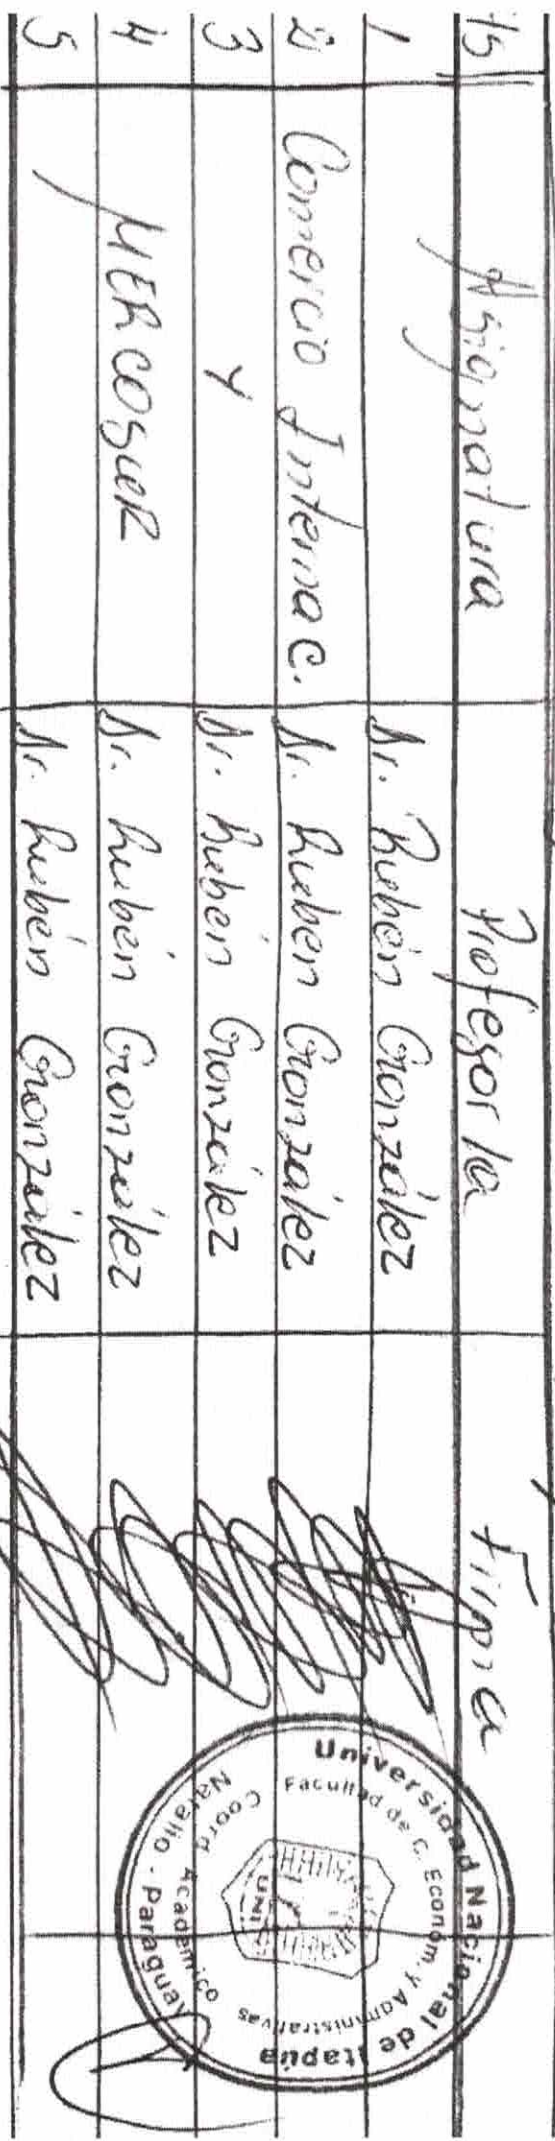 Hs Asignatura Profesor/a Firma
1 Dr. Rubén González
2 Comercio Internac. Dr. Rubén González
3 y Dr. Rubén González
4 MERCOSUR Dr. Rubén González
5 Dr. Rubén González
Universidad Nacional de Itapúa
Facultad de C. Econom. y Administrativas
Coord Académico
Natalio - Paraguay
UNI